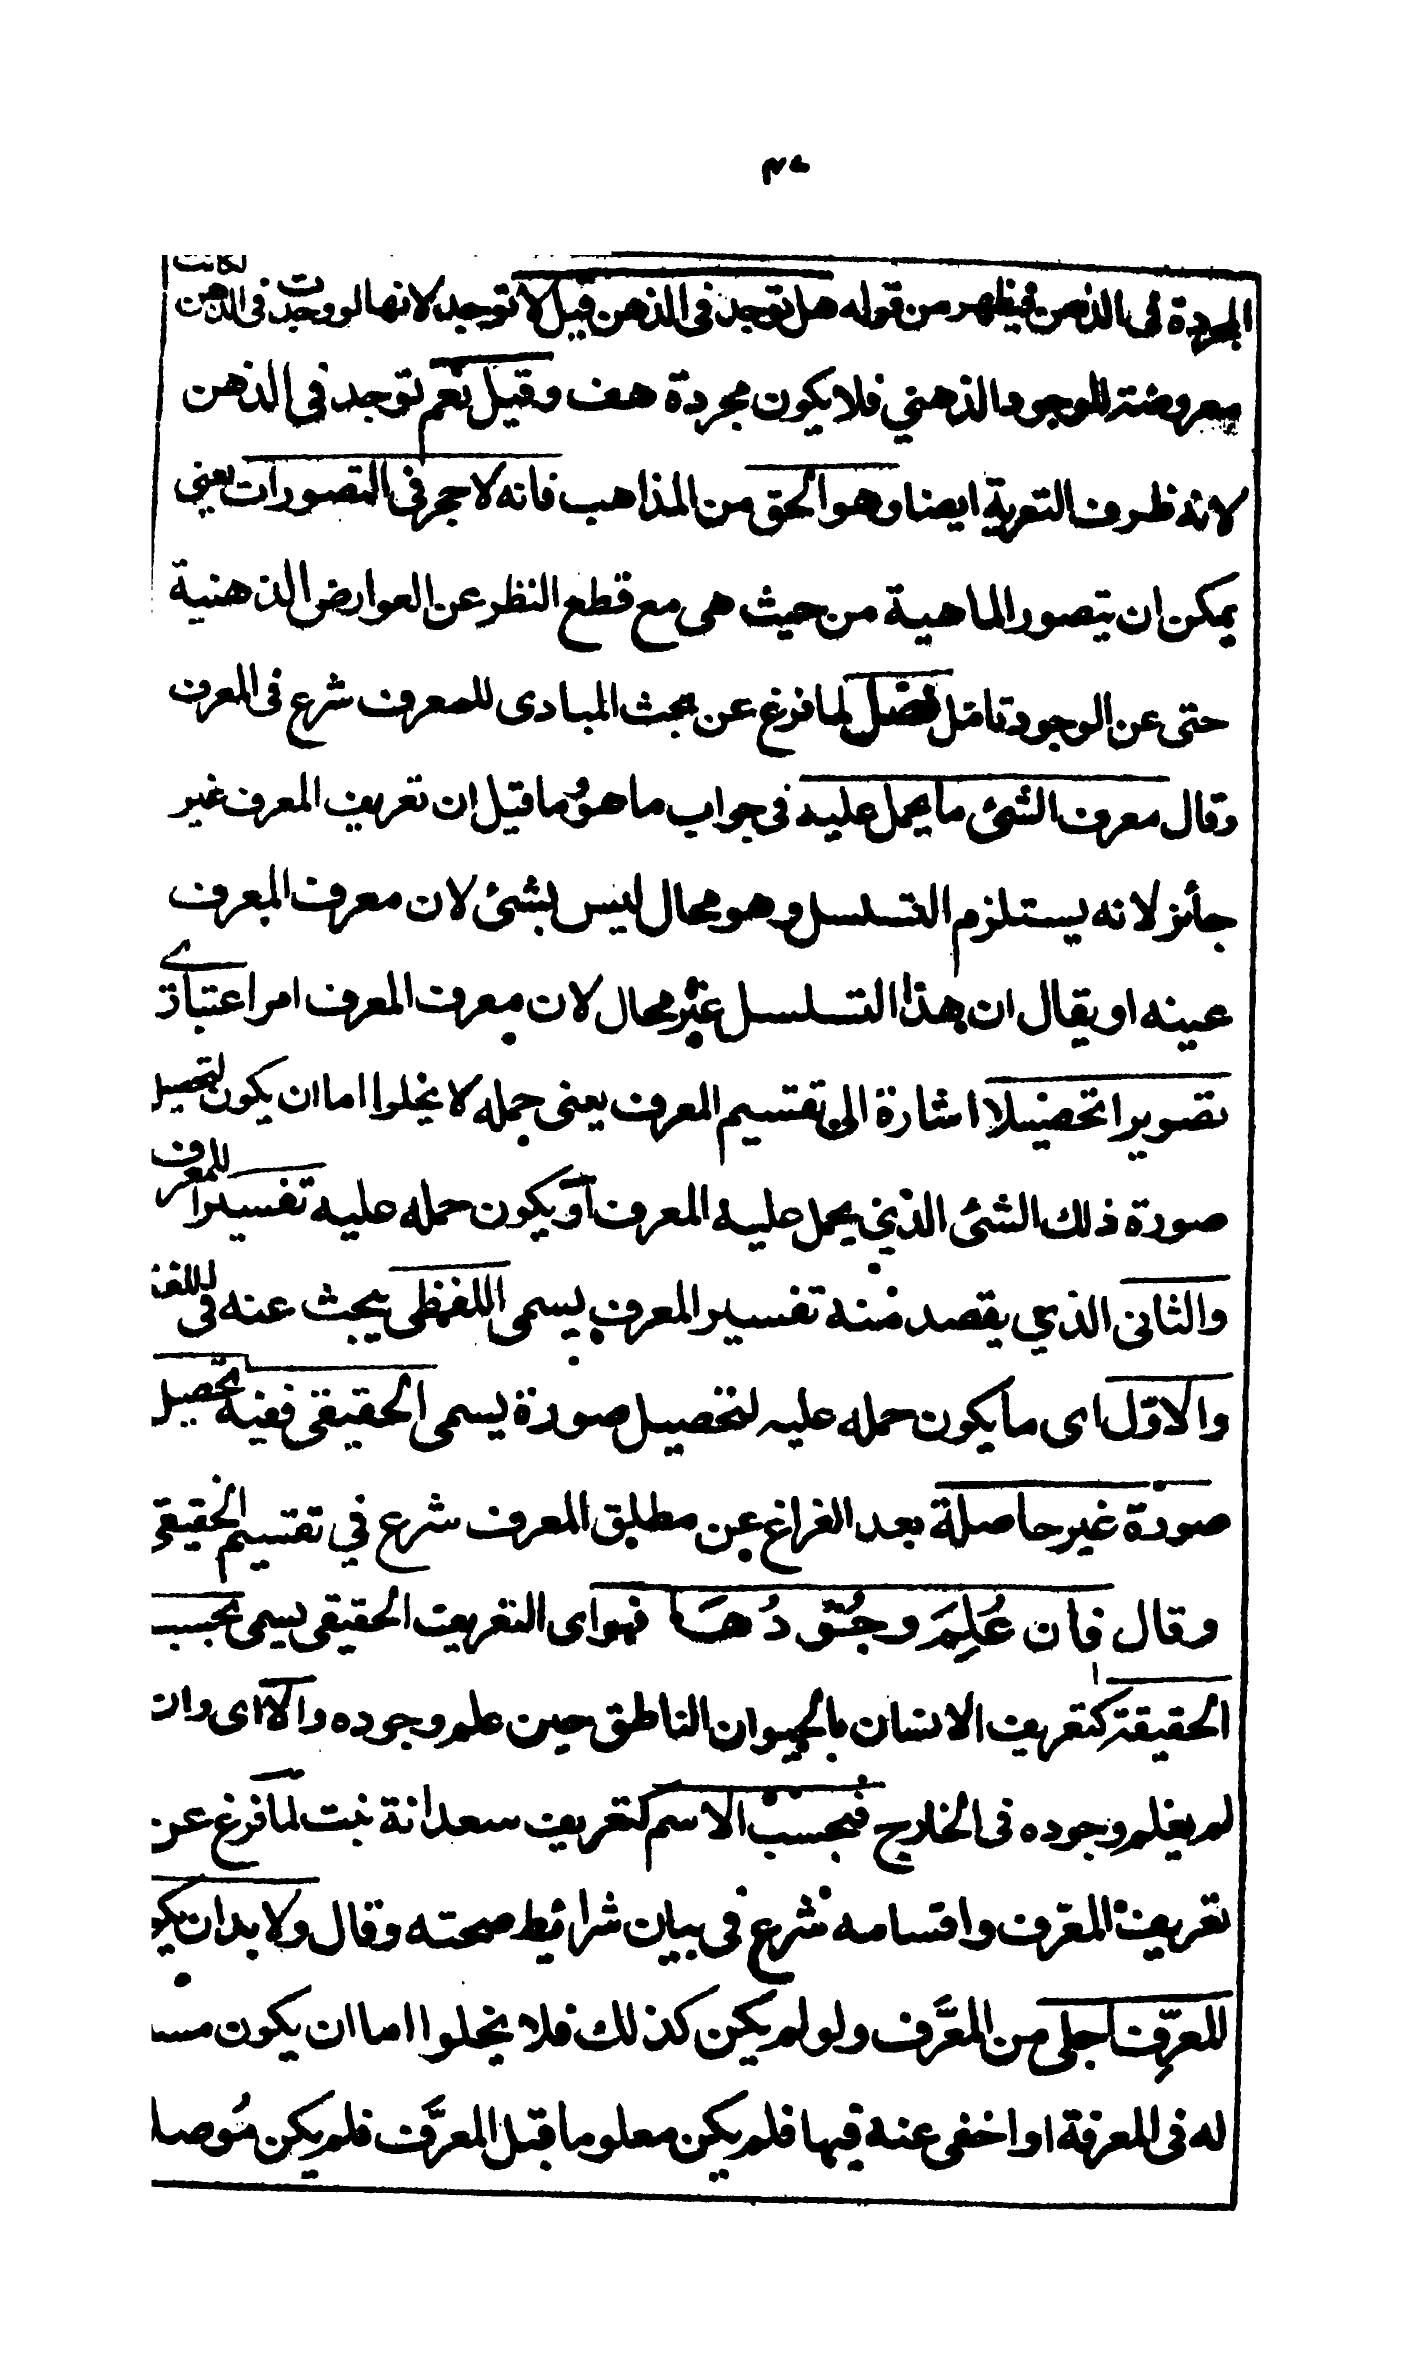 المجردة فى الذهن فيظهر من قوله هل توجد فى الذهن قيل لا توجد لانها لو وجدت فى الذهن لكانت
معروضة للوجود الذهني فلا يكون مجردة هف وقيل نعم توجد فى الذهن
لانه ظرف التعرية ايضا وهو الحق من المذاهب فانه لا حجر فى التصورات يعني
يمكن ان يتصور الماهية من حيث هى مع قطع النظر عن العوارض الذهنية
حتى عن الوجود تامل فصل لما فرغ عن بحث المبادى للمعرف شرع فى المعرف
وقال معرف الشئ ما يحمل عليه فى جواب ما هو وما قيل ان تعريف المعرف غير
جائز لانه يستلزم التسلسل وهو محال ليس بشئ لان معرف المعرف
عينه او يقال ان هذا التسلسل غير محال لان معرف المعرف امر اعتباري
تصويرا تحصيلا اشارة الى تقسيم المعرف يعنى حمله لا يخلوا اما ان يكون لتحصيل
صورة ذلك الشئ الذي يحمل عليه المعرف او يكون حمله عليه تفسيرا للمعرف
والثانى الذي يقصد منه تفسير المعرف يسمى اللفظى يبحث عنه فى اللغة
والاول اى ما يكون حمله عليه لتحصيل صورة يسمى الحقيقى ففيه تحصيل
صورة غير حاصلة بعد الفراغ عن مطلق المعرف شرع في تقسيم الحقيقي
وقال فان عُلِمَ وجُوْدُهَا فهو اى التعريف الحقيقى يسمى بحسب
الحقيقة كتعريف الانسان بالحيوان الناطق حين علم وجوده والا اى وان
لم يعلم وجوده فى الخارج فبحسب الاسم كتعريف سعدانة نبت لما فرغ عن
تعريف المعرف واقسامه شرع فى بيان شرائط صحته وقال ولا بد ان يكو
للمعرِّف اجلى من المعرَّف ولو لم يكن كذلك فلا يخلوا اما ان يكون مسا
له فى المعرفة او اخفى عنه فيها فلم يكن معلوما قبل المعرَّف فلم يكن مُوصلا